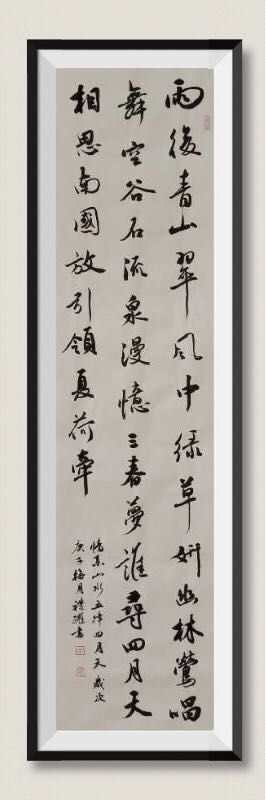 雨後青山翠風中綠草妍幽林鶯唱
舞空谷石流泉漫憶三春夢誰尋四月天
相思南國放引領夏荷牽
山水五律四月天 歲次
庚子梅月書